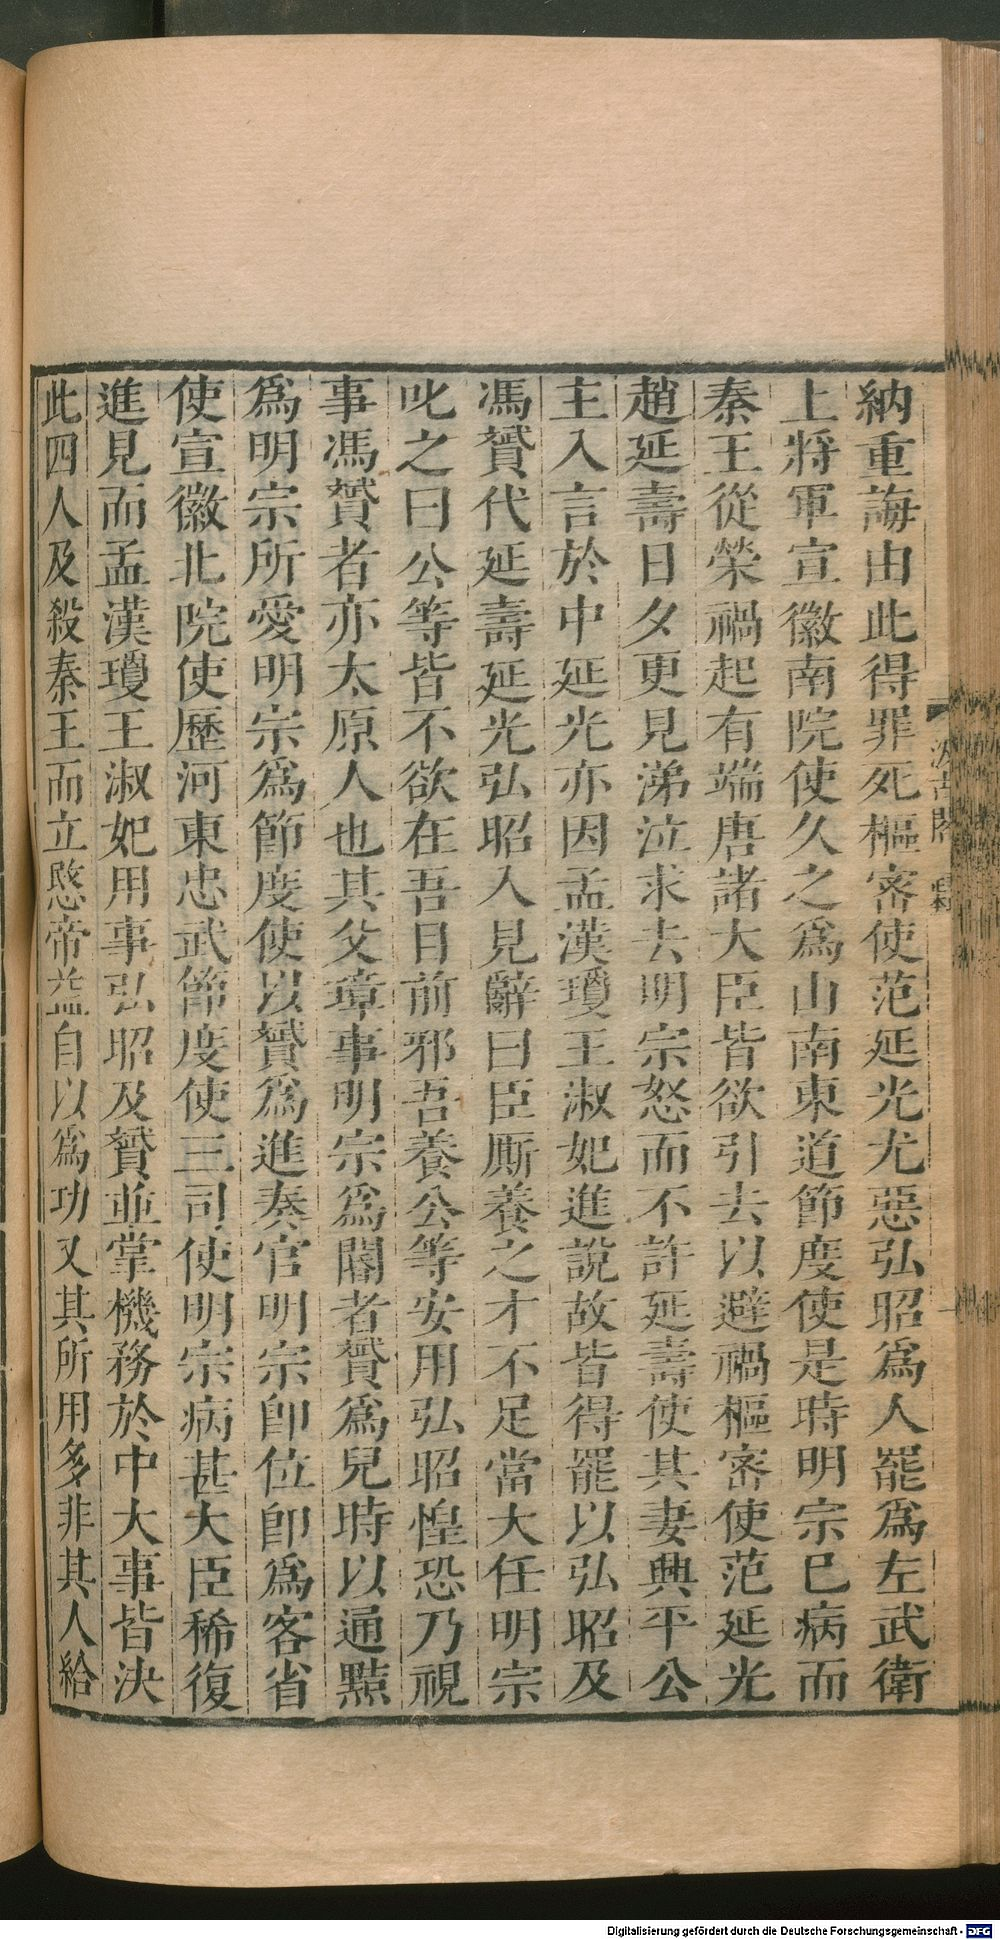 納重誨由此得罪死樞密使范延光尤惡弘昭爲人罷爲左武衛
上將軍宣徽南院使久之爲山南東道節度使是時明宗已病而
秦王從榮禍起有端唐諸大臣皆欲引去以避禍樞密使范延光
趙延壽日夕更見涕泣求去明宗怒而不許延壽使其妻興平公
主入言於中延光亦因孟漢瓊王淑妃進說故皆得罷以弘昭及
馮贇代延壽延光弘昭入見辭曰臣厮養之才不足當大任明宗
叱之曰公等皆不欲在吾目前邪吾養公等安用弘昭惶恐乃視
事馮贇者亦太原人也其父璋事明宗爲閽者贇爲兒時以通黠
爲明宗所愛明宗爲節度使以贇爲進奏官明宗卽位卽爲客省
使宣徽北院使歷河東忠武節度使三司使明宗病甚大臣稀復
進見而孟漢瓊王淑妃用事弘昭及贇並掌機務於中大事皆決
此四人及殺秦王而立愍帝益自以爲功又其所用多非其人給
汲古閣
Digitalisierung gefördert durch die Deutsche Forschungsgemeinschaft - DFG